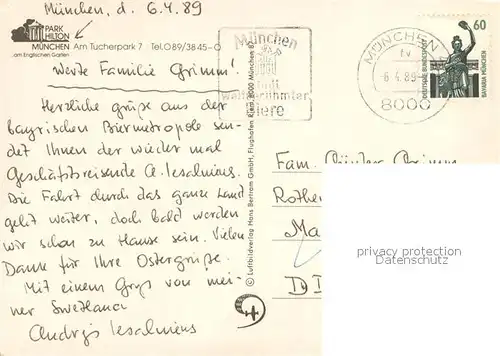 München, d. 6.4.89
PARK
HILTON
MÜNCHEN Am Tucherpark 7 Tel. 089/3845-0
am Englischen Garten
Werte Familie Grimm!
Herzliche Grüße aus der
bayrischen Biermetropole sen-
det Ihnen der wieder mal
Geschäftsreisende A. Iesalnieus.
Die Fahrt durch das ganze Land
geht weiter, doch bald werden
wir schon zu Hause sein. Vielen
Dank für Ihre Ostergrüße.
Mit einem Gruß von mei-
ner Swetlana
Andrejs Iesalnieus
© Luftbildverlag Hans Bertram GmbH, Flughafen Riem, 8000 München 87
München
Stadt
weltberühmter
Biere
MÜNCHEN
-6.4.89
8000
60
DEUTSCHE BUNDESPOST
BAVARIA MÜNCHEN
Fam. Günter Grimm
Rother
Ma
DD
privacy protection
Datenschutz